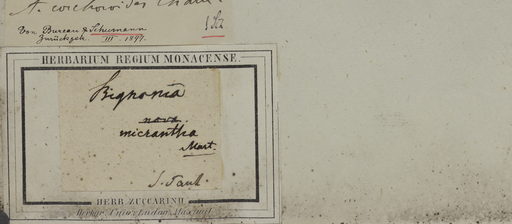 Von Bureau & Schumann
zurückgeh. III. 1897.
HERBARIUM REGIUM MONACENSE.
Bignonia
nova
micrantha
Mart.
S. Paul.
HERB. ZUCCARINII